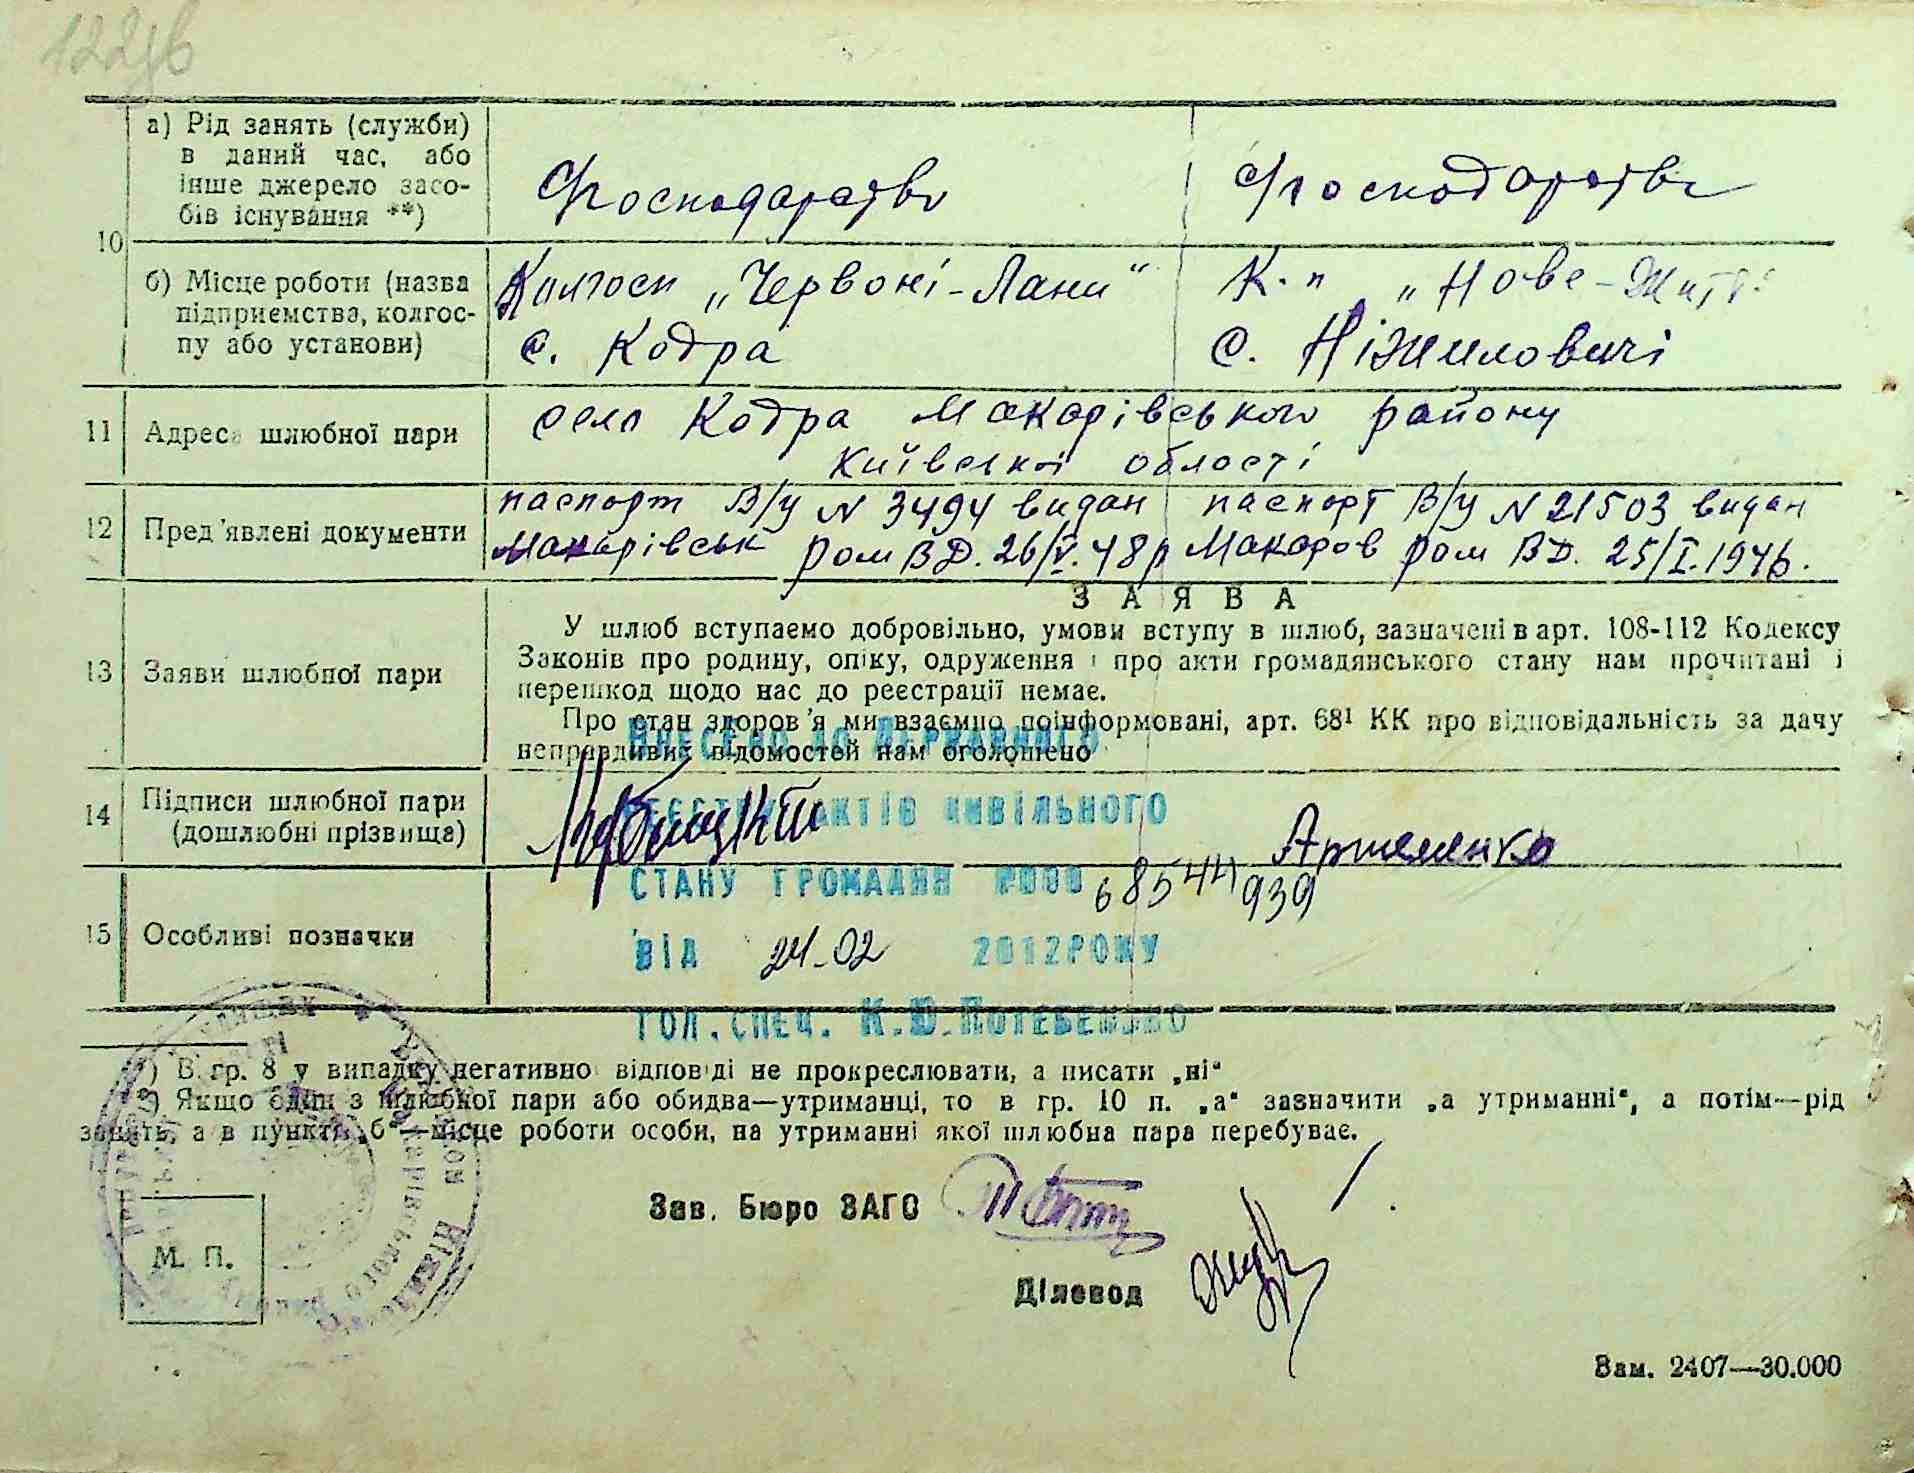 а) Рід занять (служби)
в даний час, або
інше джерело засо-
бів існування **)
10
б) Місце роботи (назва
підприємства, колгос-
пу або установи)
Колгосп „Червоні-Лани“
с. Кодра
К-п „Нове-Життя
с. Ніжиловичі
11 Адреса шлюбної пари
село Кодра Макарівського району
Київської області
12 Пред'явлені документи
паспорт В/У N 3494 видан
Макарівськ ромВД. 26/V.48р
паспорт В/У N 21503 видан
Макаров ром ВД. 25/I.1946.
13 Заяви шлюбної пари
ЗАЯВА
У шлюб вступаємо добровільно, умови вступу в шлюб, зазначені в арт. 108-112 Кодексу
Законів про родину, опіку, одруження і про акти громадянського стану нам прочитані і
перешкод щодо нас до реєстрації немає.
Про стан здоров'я ми взаємно поінформовані, арт. 68¹ КК про відповідальність за дачу
неправдивих відомостей нам оголошено
14 Підписи шлюбної пари
(дошлюбні прізвища)
Артеменко
15 Особливі позначки
Внесено до Державного
реєстру актів цивільного
стану громадян
68544939
від 24-02 2012року
гол. спец. К.Ю.Потебенько
*) В гр. 8 у випадку негативної відповіді не прокреслювати, а писати „ні“
**) Якщо один з шлюбної пари або обидва—утриманці, то в гр. 10 п. „а“ зазначити „а утриманні“, а потім—рід
занять, а в пункті „б“—місце роботи особи, на утриманні якої шлюбна пара перебуває.
Зав. Бюро ЗАГС
М. П.
Діловод
Зам. 2407—30.000